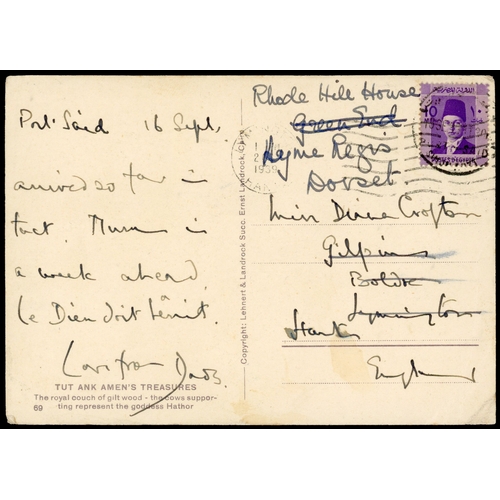 Port Said 16 Sept.
arrived so far in
tact. Mum is
a week ahead.
Le Dieu doit bénit.
Love from Dads.
TUT ANK AMEN'S TREASURES
The royal couch of gilt wood - the cows suppor-
ting represent the goddess Hathor
69
Copyright: Lehnert & Landrock Succ. Ernst Landrock, Cairo
Rhode Hill House
Green End
Lyme Regis
Dorset.
Miss Diana Crofton
Gilpins
Boldre
Lymington
Hants
England
1939
10